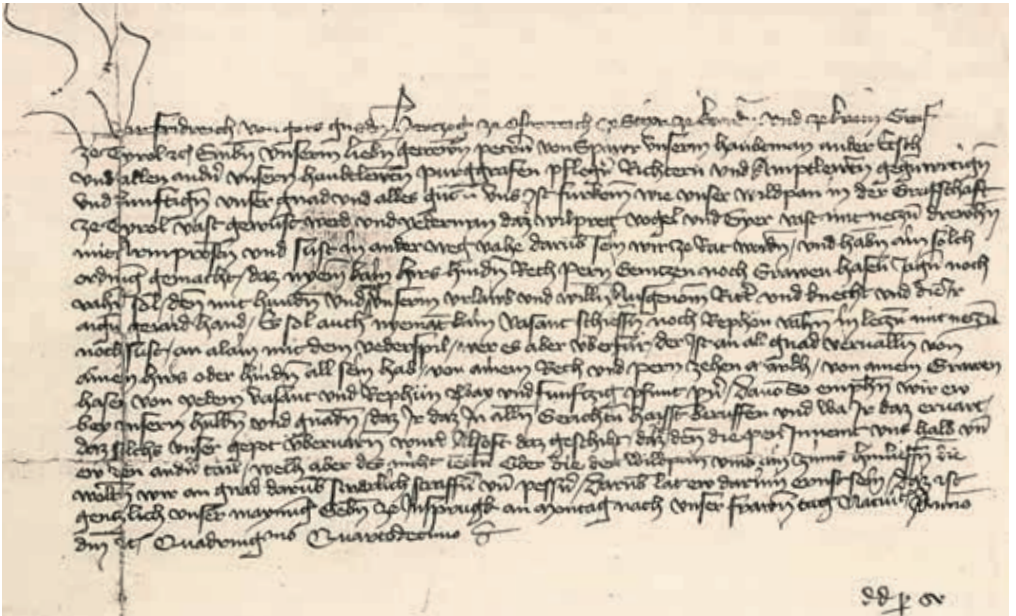 Wir fridreich von gots gnaden Herczog ze Osterreich ze Steyr ze kernden und ze krain Graf
ze Tyrol etc Embieten unserm lieben getrewn petern von Spawr unserm haubtman an der Etsch
und allen andern unsern haubtlewten purggrafen pflegern Richtern und Amptlewten gegenwurtigen
und kunftigen unser gnad und alles gut uns ist furkomen wie unser wildpan in der Grafschaft
ze Tyrol vast gewust werd und yederman daz wilpret vogel und Tyer vast mit neczen
mit und sust in ander weg vahe darumb sein wir ze Rat worden und haben ain solch
ordnung gemacht daz nyemand kain hirs hinden Rech pern Gemczen noch Grawen hasen Jagen noch
vahen sol den mit hunden und unserm urlaub und willen Ausgenomen Ritter und knecht und die ir
aigen gejaid hand Es sol auch nyemant kain vasant schiessen noch Rephon vahen in mit neczen
noch sust an alain mit dem vederspil wer es aber uberfur der ist an al gnad vervallen von
ainem hirs oder hinden all sein hab von ainem Rech und pern zehen von ainem Grawen
hasen von yedem vasant und Rephun und funfczig pfunt perner Davon So emphelhen wir ew
bey unsern hulden und gnaden daz Ir daz In allen Gerichten haisst beruffen und wa Ir daz ervart
daz solchs unser gepot ubervarn wurd Alsoft daz geschicht daz den die pen Innemt uns halb und
ew den andern tail welh aber des nicht teten Oder die den wildpan umb ain zins hinliessen die
wolten wir an gnad darumb swerlich straffen und pessern Darumb lat ew darinn ernst sein daz ist
genczlich unser maynung Geben ze Insprugk an Montag nach unser frawen tag Nativitatis Anno
domini etc Quadringentesimo Quartodecimo
d d p